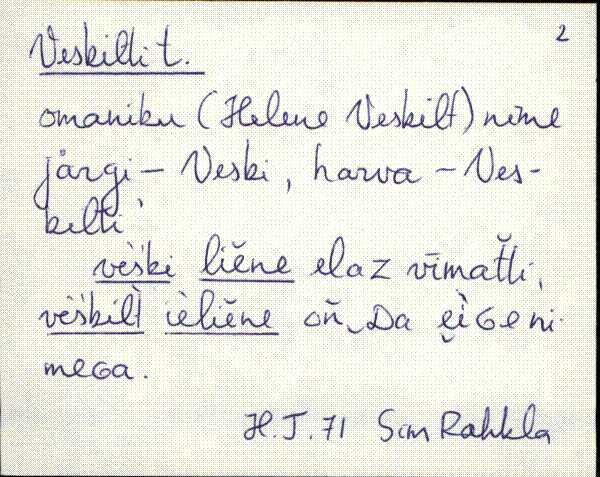 2
Veskilti t.
omaniku (Helene Veskilt) nime
järgi – Veski, harva – Ves-
kilti
vèški liēne elaz vīmatli,
vèškilt ièliēne oñ, Da ei̯Geni
meGa.
H.J. 71 Sim Rahkla